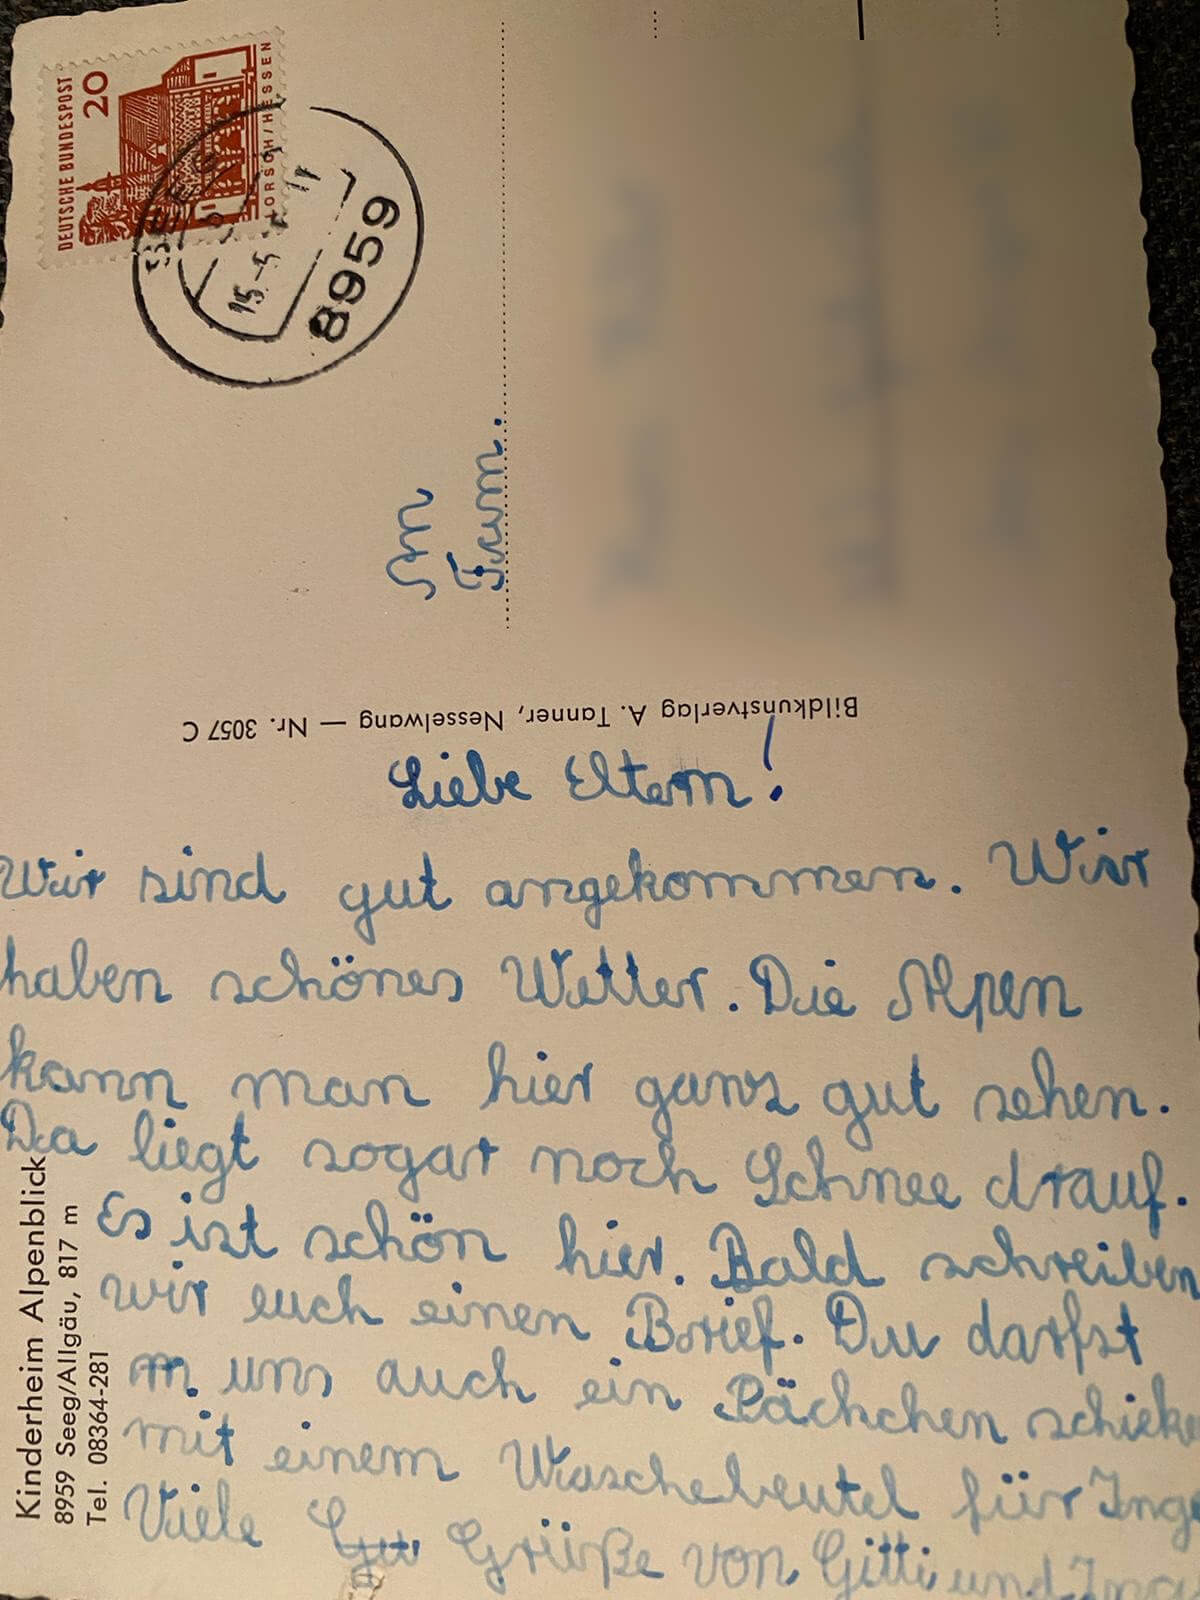 DEUTSCHE BUNDESPOST
20
LORSCH/HESSEN
SEEG
15.-5.
8959
An
Fam.
Bildkunstverlag A. Tanner, Nesselwang — Nr. 3057 C
Liebe Eltern!
Wir sind gut angekommen. Wir
haben schönes Wetter. Die Alpen
kann man hier ganz gut sehen.
Da liegt sogar noch Schnee drauf.
Es ist schön hier. Bald schreiben
wir euch einen Brief. Du darfst
m. uns auch ein Pächchen schicke
mit einem Waschebeutel für Inge
Viele Gu Grüße von Gitti und Inge
Kinderheim Alpenblick
8959 Seeg/Allgäu, 817 m
Tel. 08364-281